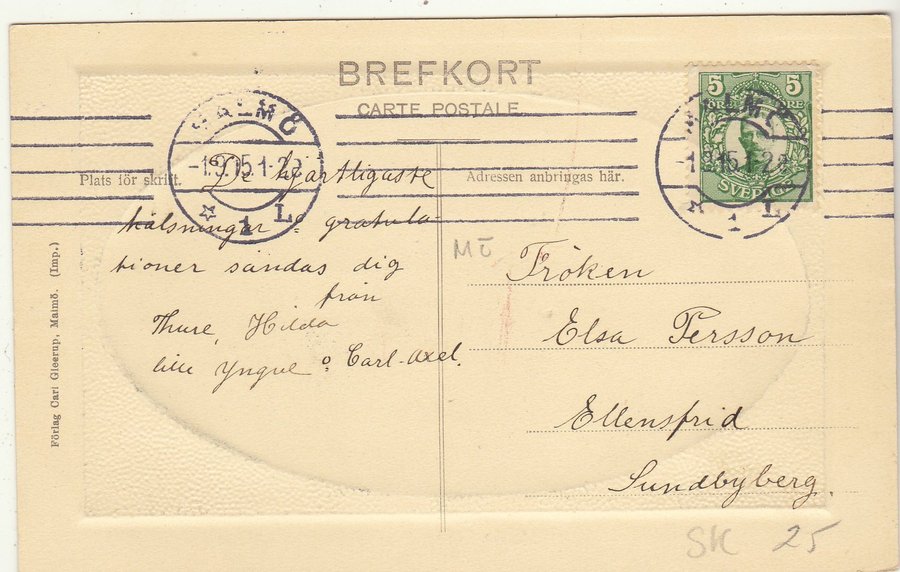 BREFKORT
CARTE POSTALE
MALMÖ
-1.9.15.1-2
1 L
5 5
ÖRE ÖRE
SVERIGE
MALMÖ
-1.9.15.1-2
1 L
Plats för skrift.
De hjärtligaste
hälsningar o gratula-
tioner sändas dig
från
Thure, Hilda
lille Yngve o Carl-Axel.
Adressen anbringas här.
Mö
Fröken
Elsa Persson
Ellensfrid
Sundbyberg.
SK 25
Förlag Carl Gleerup, Malmö. (Imp.)